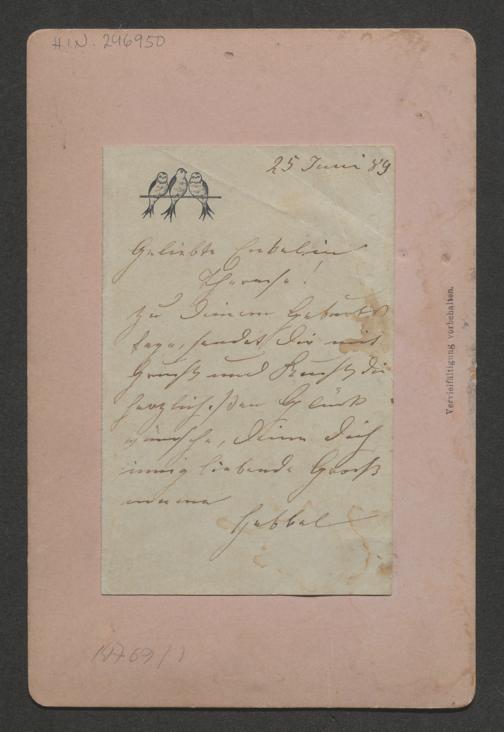 H.I.N. 246950
25 Juni 89
Geliebte Enkelin
Therese!
Zu Deinem Geburts
tage, sendet Dir mit
Gruß und Kuß, die
herzlichsten Glück
wünsche, Deine Dich
innig liebende Groß
mama
Hebbel
Vervielfältigung vorbehalten.
69/1